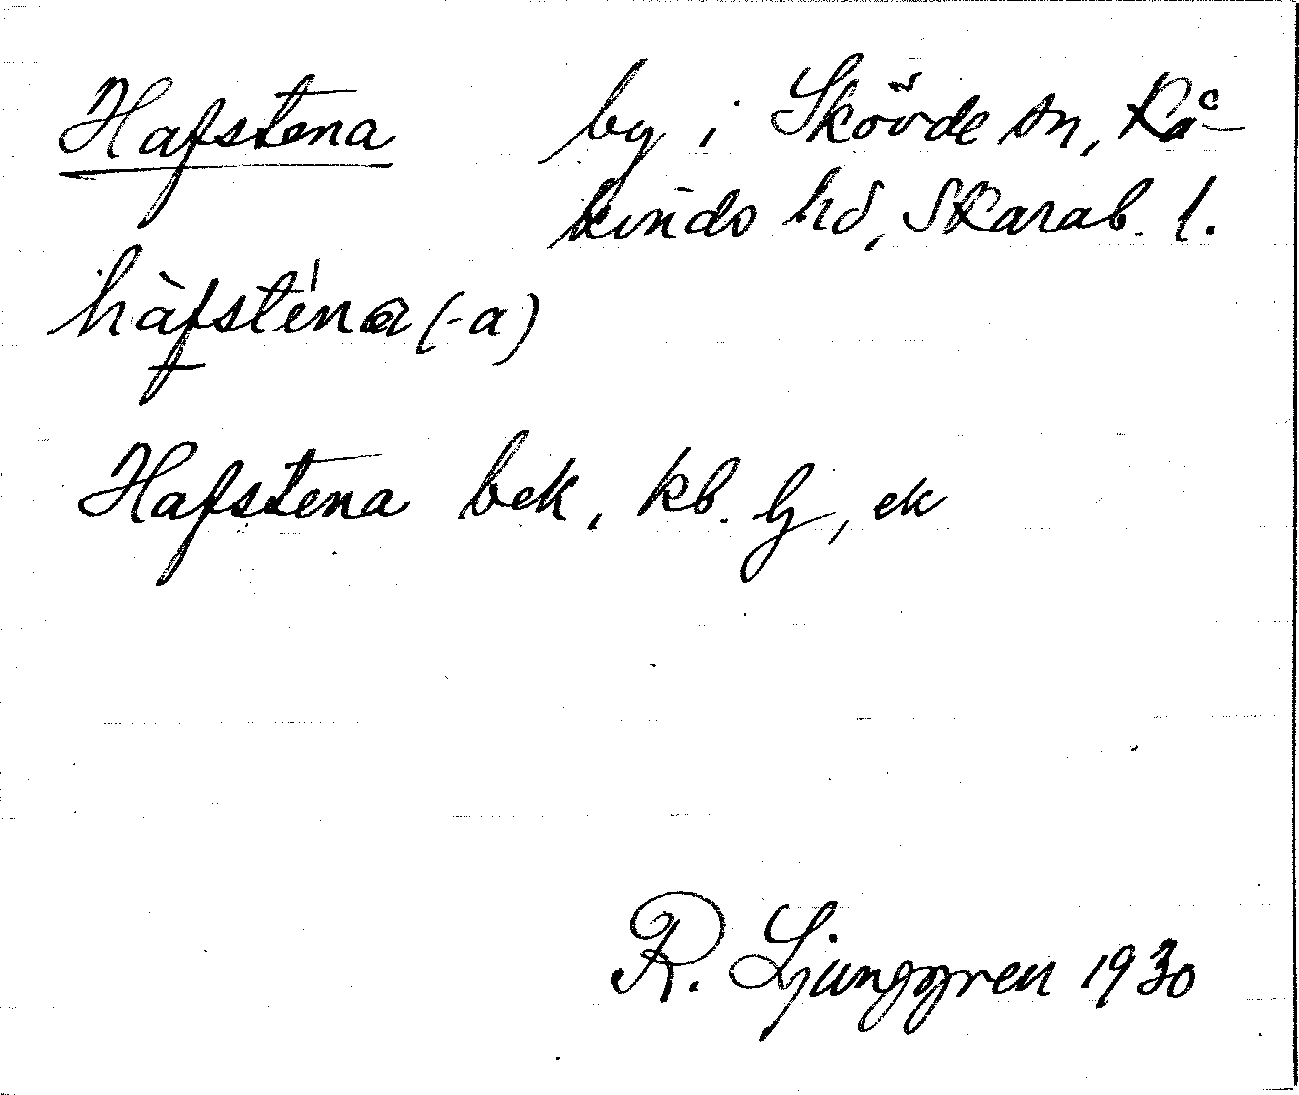 Hafstena by i Skövde sn, Kå-
kinds hd, Skarab. l.
hàfsténa (-a)
Hafstena bek, kb. lj, ek
R. Ljunggren 1930